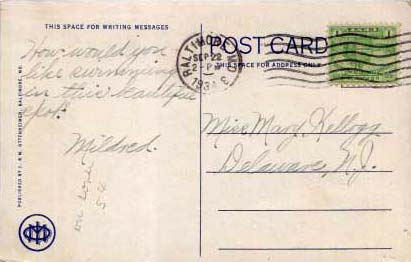 THIS SPACE FOR WRITING MESSAGES
How would you
like swimming
in this beautiful
spot.
Mildred.
PUBLISHED BY I. & M. OTTENHEIMER, BALTIMORE, MD.
POST CARD
THIS SPACE FOR ADDRESS ONLY
BALTIMORE MD.
SEP 22
2-PM
1934
Miss Mary Kellogg
Delaware, N.J.